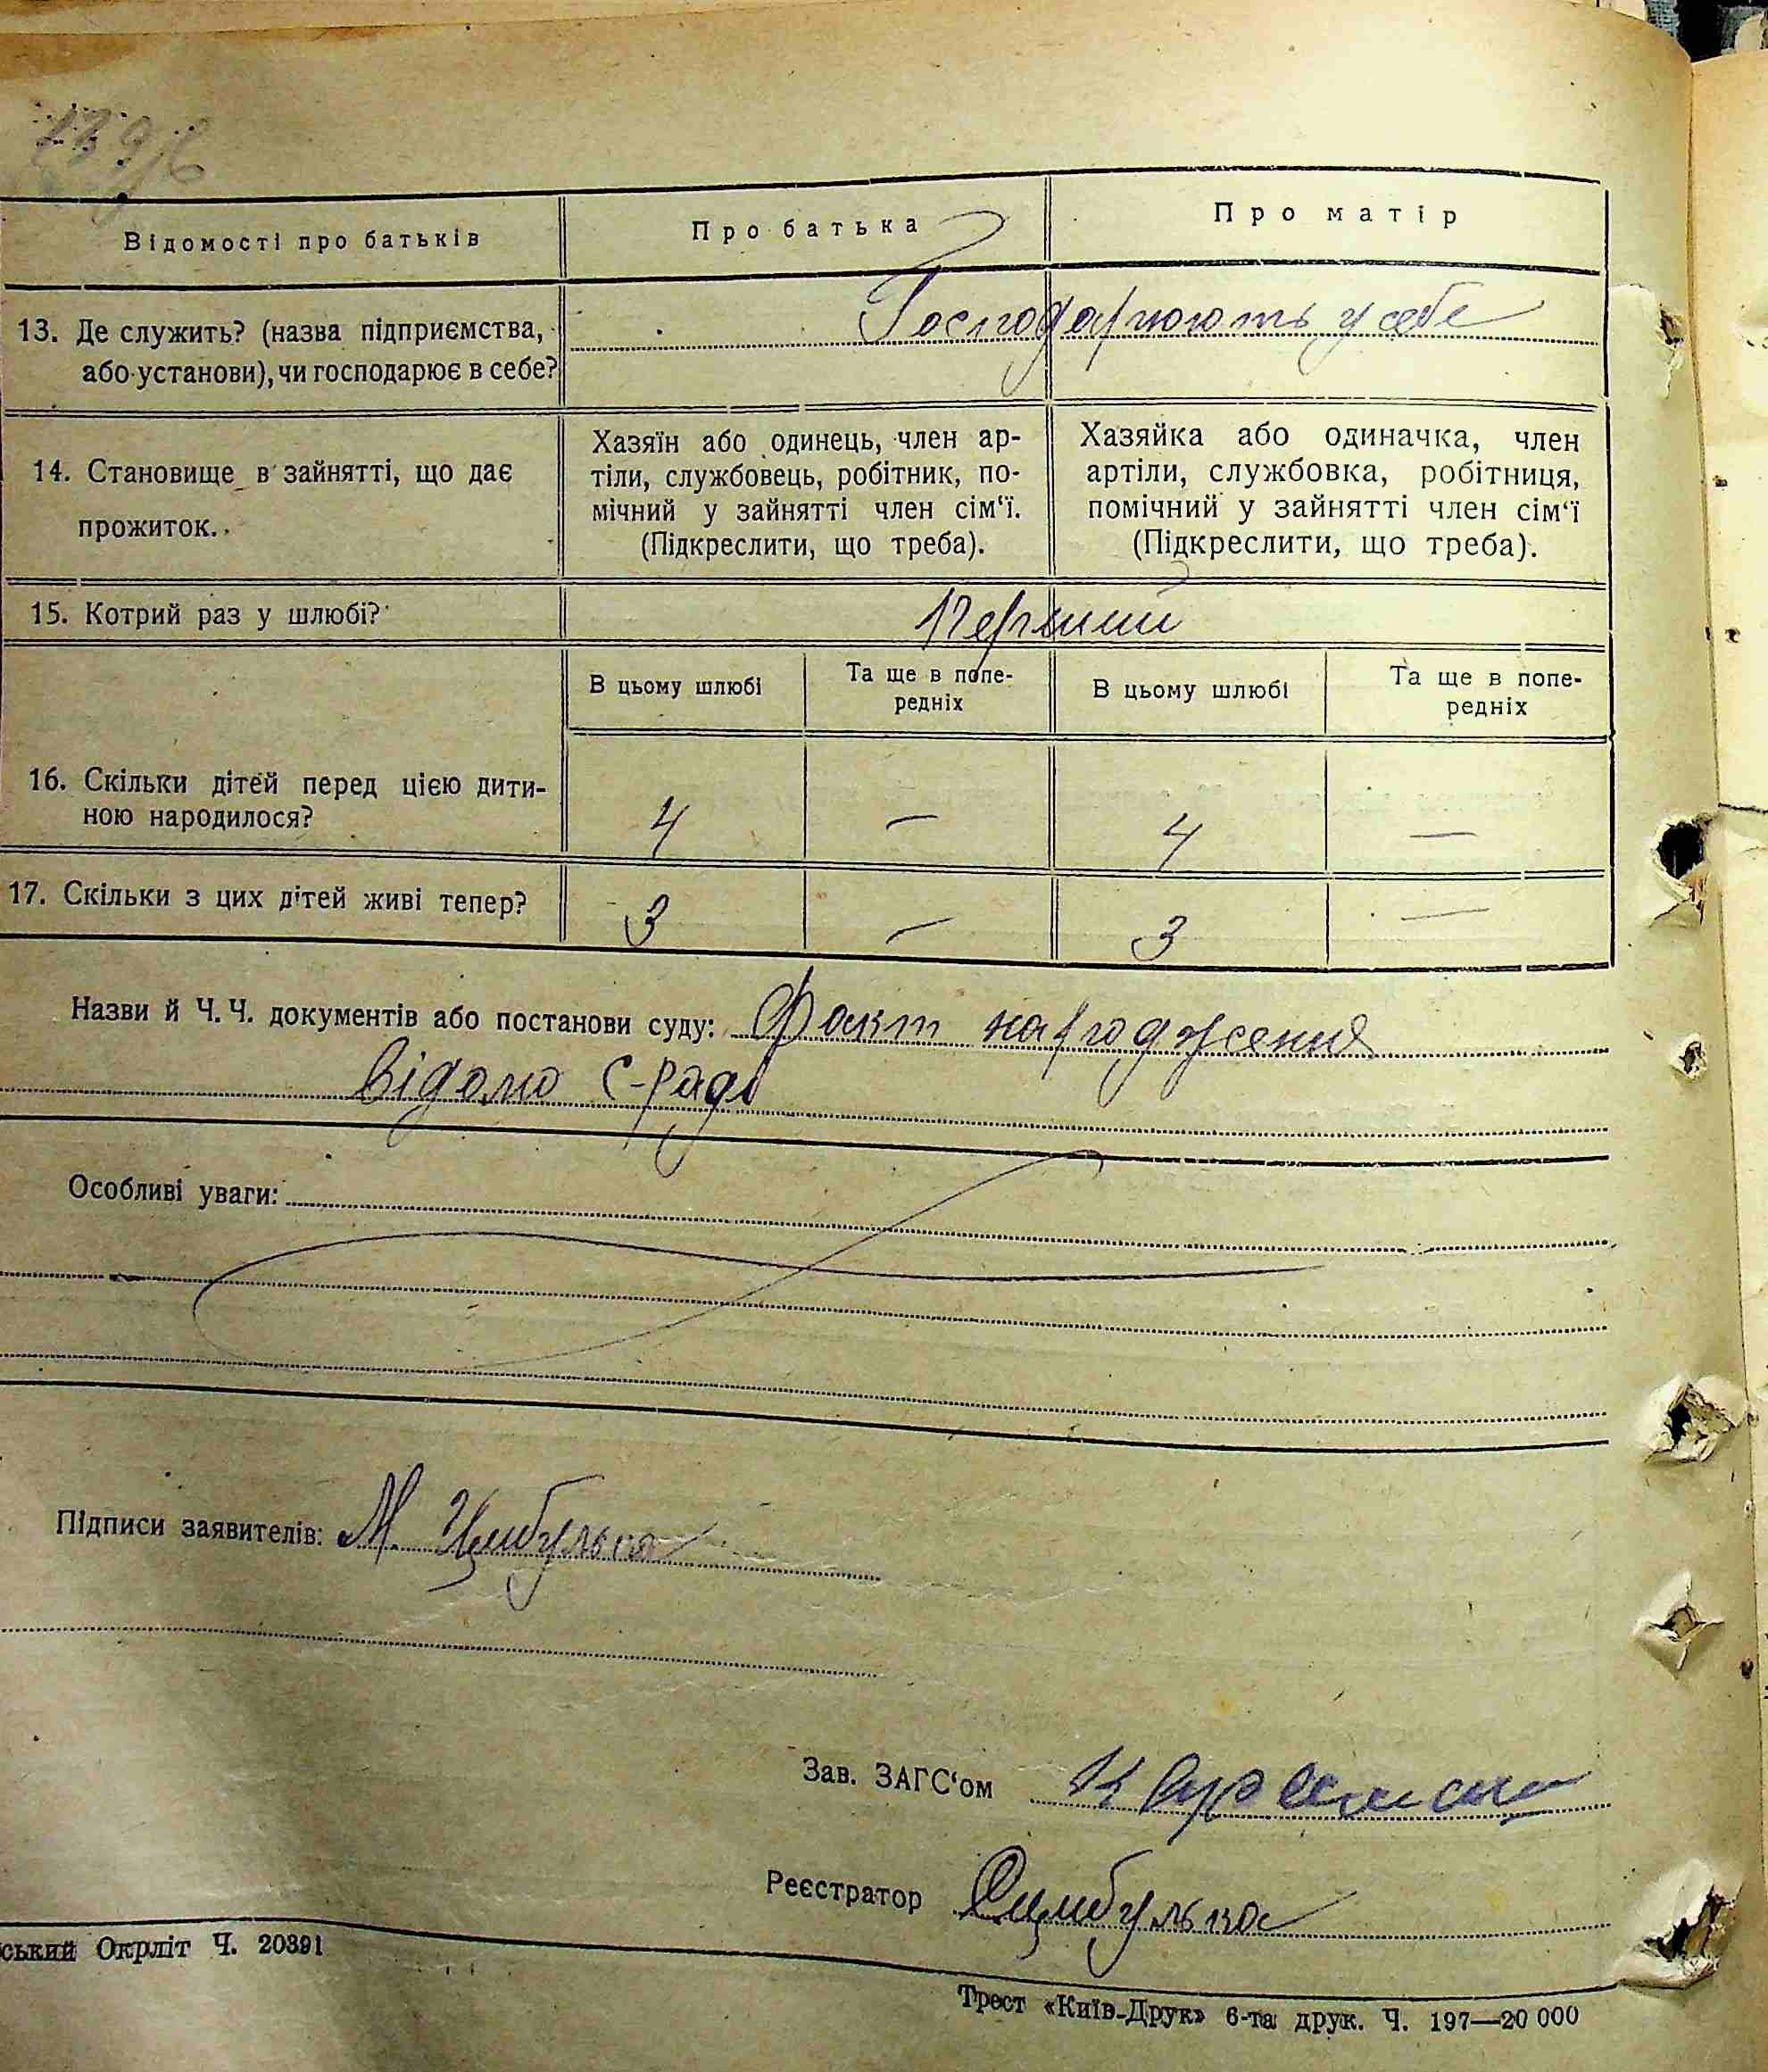 Відомості про батьків
Про батька
Про матір
13. Де служить? (назва підприємства,
або установи), чи господарює в себе?
Господарюють у себе
14. Становище в зайнятті, що дає
прожиток.
Хазяїн або одинець, член ар-
тіли, службовець, робітник, по-
мічний у зайнятті член сім‘ї.
(Підкреслити, що треба).
Хазяйка або одиначка, член
артіли, службовка, робітниця,
помічний у зайнятті член сім‘ї
(Підкреслити, що треба).
15. Котрий раз у шлюбі?
В цьому шлюбі
Та ще в попе-
редніх
В цьому шлюбі
Та ще в попе-
редніх
16. Скільки дітей перед цією дити-
ною народилося?
4 — 4 —
17. Скільки з цих дітей живі тепер?
3 — 3 —
Назви й Ч. Ч. документів або постанови суду: Факт народження
відомо С-раді
Особливі уваги:
Підписи заявителів: М. Цимбулька
Зав. ЗАГС‘ом
Реєстратор
ський Окрліт Ч. 20391
Трест «Київ-Друк» 6-та друк. Ч. 197—20 000